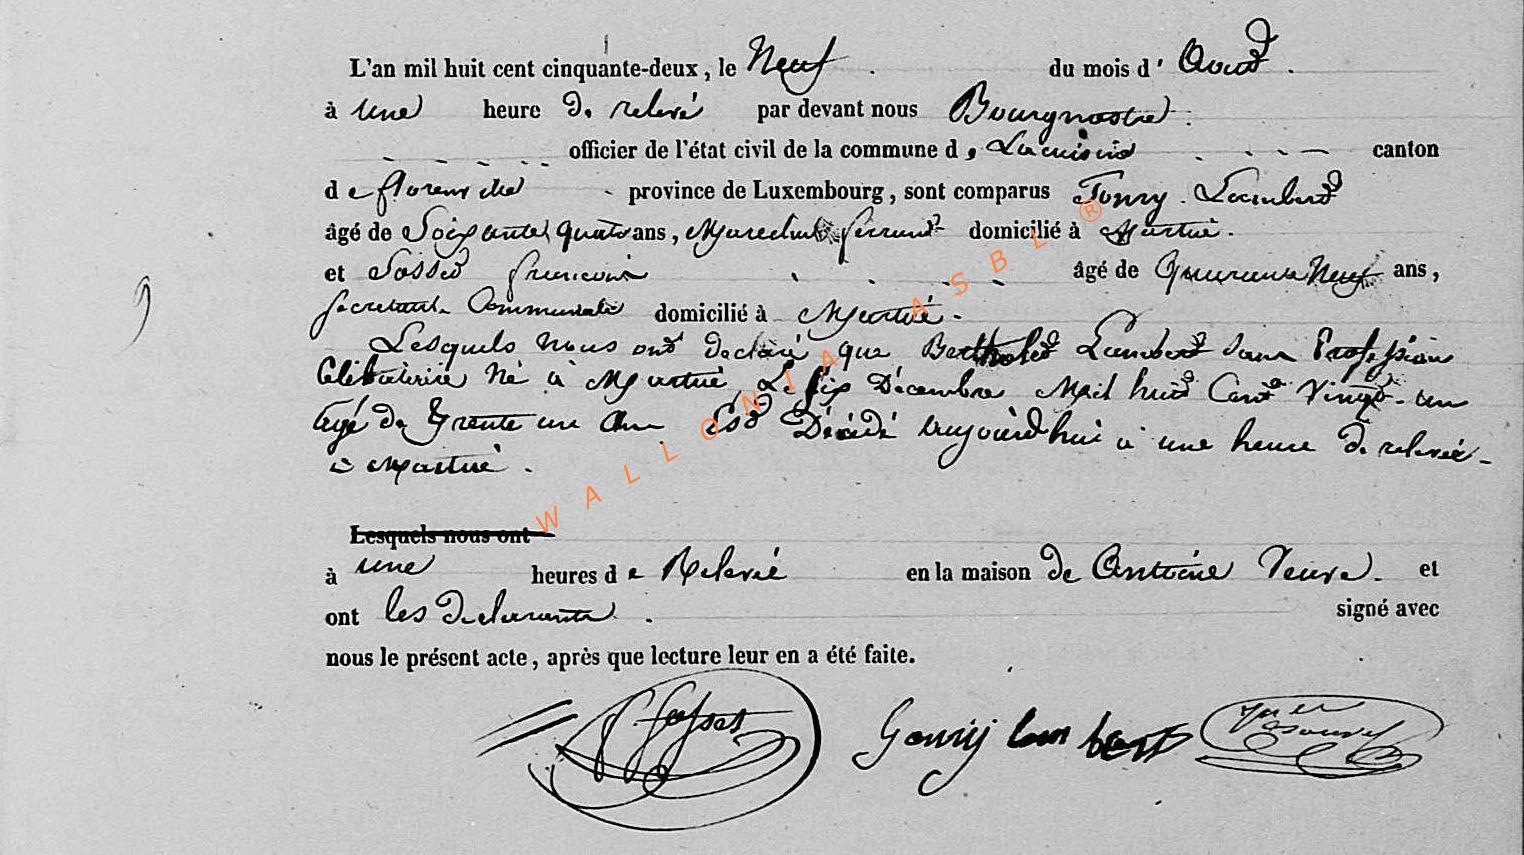 L'an mil huit cent cinquante-deux, le Neuf du mois d' Aout.
à une heure de relevé par devant nous Bourgmestre
officier de l'état civil de la commune de Lacuisine canton
de florenville province de Luxembourg, sont comparus Lambert
âgé de Soixante quatre ans, Marechal ferrant domicilié à Martué.
et Fosset francois âgé de Quarente Neuf ans,
Secretaire Communale domicilié à Martué.
Lesquels Nous ont declaré que Bertholet Lambert Sans Profession
Celibataire Né à Martué Le Six Décembre Mil huit Cent Vingt-un
agé de Trente un an Est Décédé aujourd'hui à une heure de relevée
à Martué.
Lesquels nous ont
à une heures de Relevée en la maison de Antoine Veuve. et
ont les Declarants. signé avec
nous le présent acte, après que lecture leur en a été faite.
fosset lambert
® WALLONIA ASBL